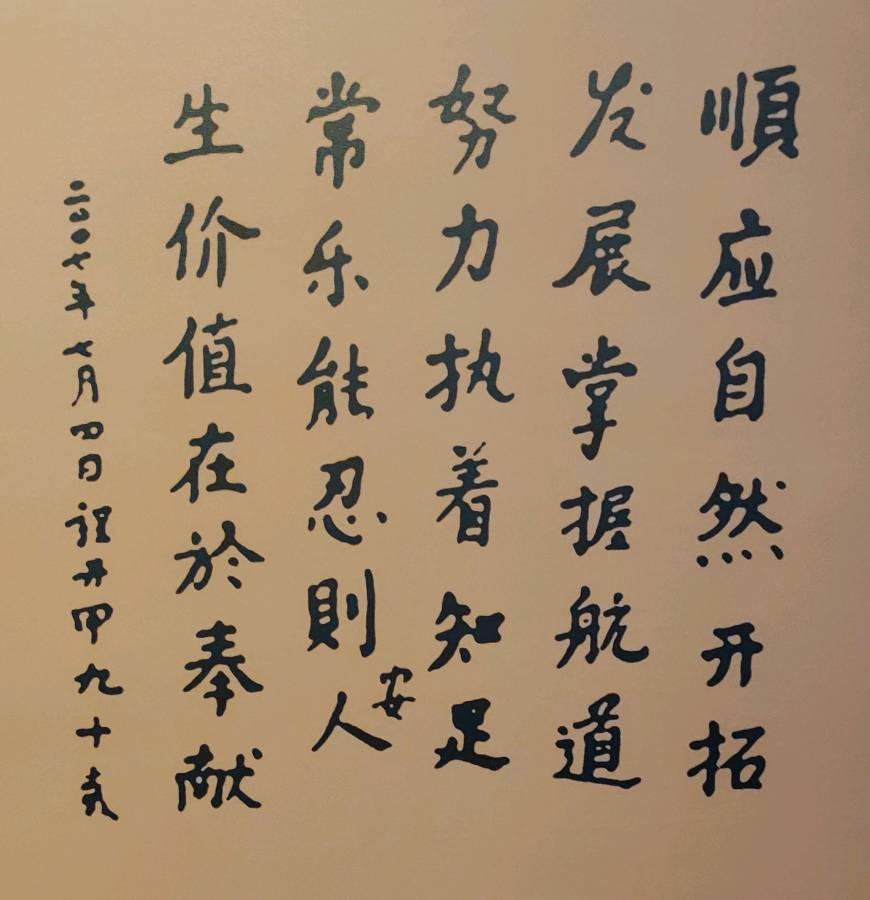 順应自然开拓
发展掌握航道
努力执着知足
常乐能忍則安人
生价值在於奉献
二〇〇七年七月四日程开甲九十